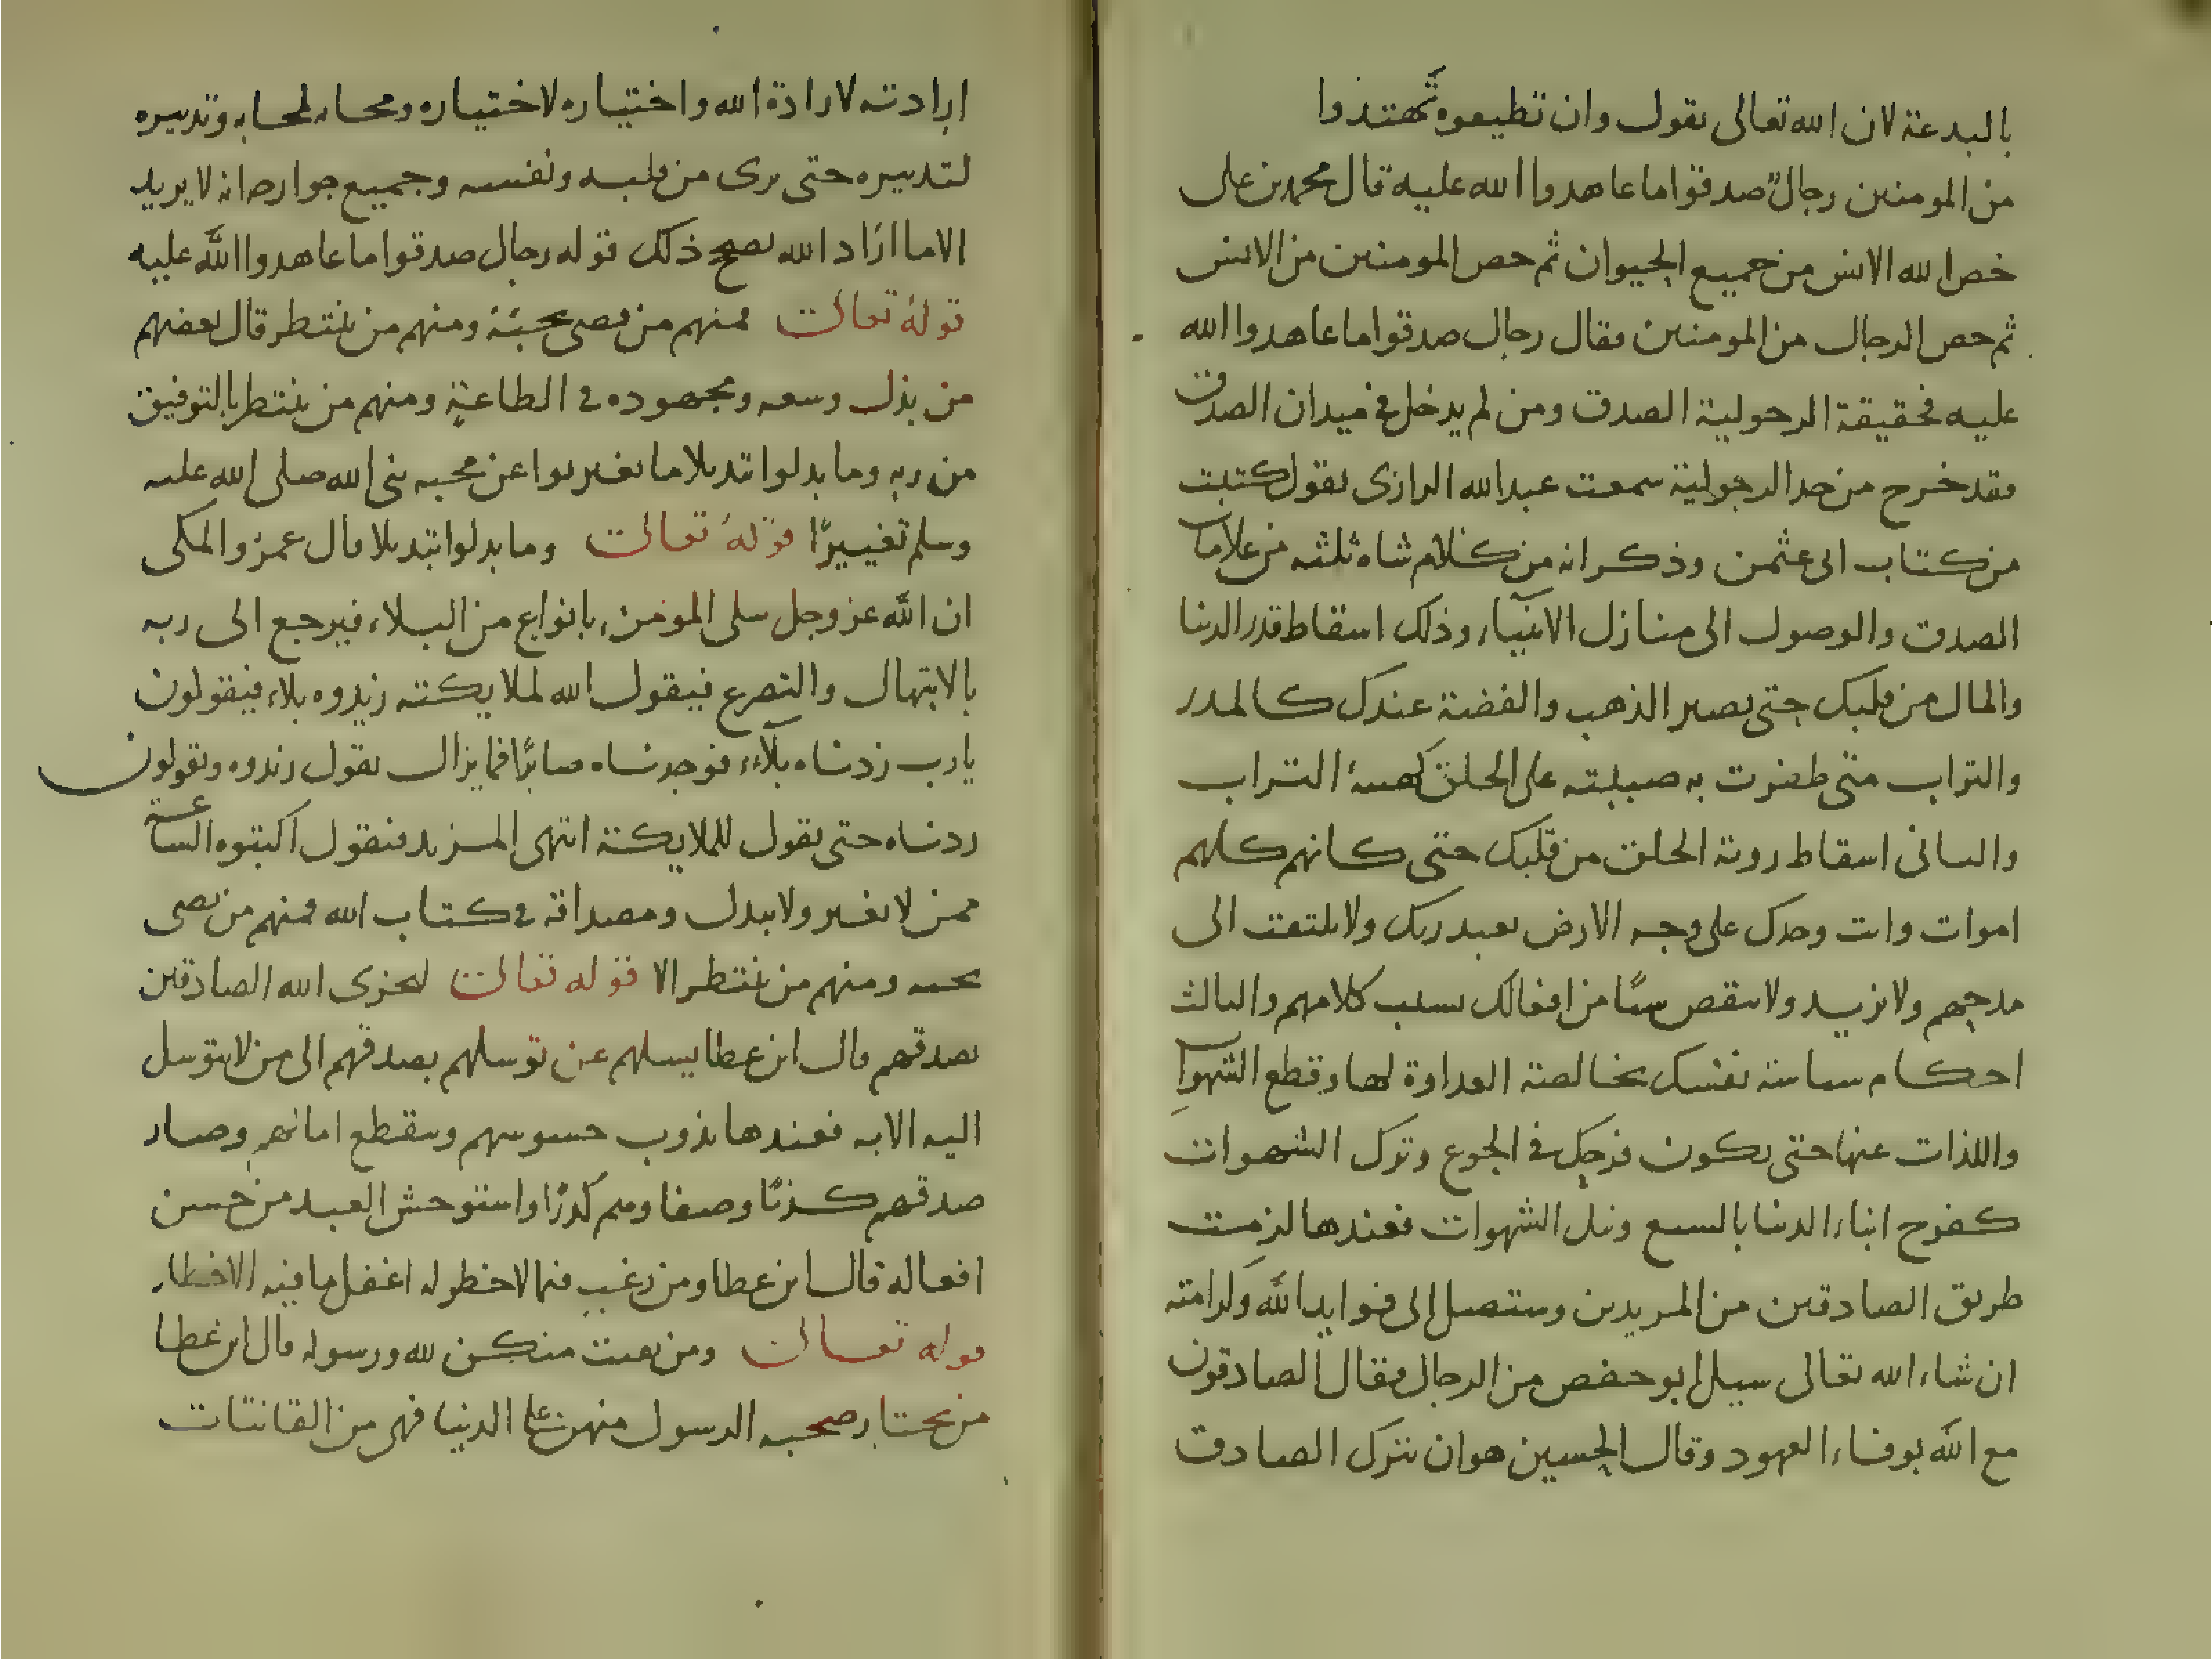 بالبدعة لان الله تعالى يقول وان تطيعوه تهتدوا
من المومنين رجال صدقوا ما عاهدوا الله عليه قال محمد بن على
خص الله الانس من جميع الحيوان ثم خص المومنين من الانس
ثم خص الرجال من المومنين فقال رجال صدقوا ما عاهدوا الله
عليه فحقيقة الرجولية الصدق ومن لم يدخل في ميدان الصدق
فقد خرج من حد الرجولية سمعت عبد الله الرازى يقول كتبت
من كتاب ابى عثمن وذكر انه من كلام شاه ثلثه من علامات
الصدق والوصول الى منازل الانبياء وذلك اسقاط قدر الدنيا
والمال من قلبك حتى يصير الذهب والفضة عندك كالمدر
والتراب متى ظفرت به صببته على الخلق كهيئة التراب
والثانى اسقاط روية الخلق من قلبك حتى كانهم كلهم
اموات وانت وحدك على وجه الارض تعبد ربك ولا يلتفت الى
مدحهم ولا يزيد ولا ينقص شيئا من افعالك بسبب كلامهم والثالث
احكام سياسة نفسك بخالصة العداوة لها وقطع الشهوات
واللذات عنها حتى يكون فرحك في الجوع وترك الشهوات
كفرح ابناء الدنيا بالشبع ونيل الشهوات فعندها لزمت
طريق الصادقين من المريدين وستصل الى فوايد الله وكرامته
ان شاء الله تعالى سيل ابو حفص من الرجال فقال الصادقون
مع الله بوفاء العهود وقال الحسين هو ان يترك الصادق
ارادته لارادة الله واختياره لاختياره ومحابه لمحابه وتدبيره
لتدبيره حتى يرى من قلبه ونفسه وجميع جوارحه انه لا يريد
الا ما اراد الله يصحح ذلك قوله رجال صدقوا ما عاهدوا الله عليه
قوله تعالى فمنهم من قضى نحبه ومنهم من ينتظر قال بعضهم
من بذل وسعه ومجهوده في الطاعة ومنهم من ينتظر بالتوفيق
من ربه وما بدلوا تبديلا ما تغيروا عن محبه نبى الله صلى الله عليه
وسلم تغييرًا قوله تعالى وما بدلوا تبديلا قال عمرو المكى
ان الله عز وجل يبلى المومن بانواع من البلاء فيرجع الى ربه
بالابتهال والتضرع فيقول الله لملايكته زيدوه بلاء فيقولون
يارب زدناه بلاء فوجدناه صابرًا فما يزال يقول زيدوه ويقولون
زدناه حتى يقول للملايكة انتهى المزيد فيقول اكتبوه الساعة
ممن لا يغير ولا يبدل ومصداقه في كتاب الله فمنهم من قضى
نحبه ومنهم من ينتظر الا قوله تعالى ليجزى الله الصادقين
بصدقهم قال ابن عطا يسلهم عن توسلهم بصدقهم الى من لا يتوسل
اليه الا به فعندها يذوب حسوسهم وينقطع امانيهم وصار
صدقهم كذبًا وصفاوهم كدرًا واستوحش العبد من حسن
افعاله قال ابن عطا ومن رغب فيما لا خطر له اغفل ما فيه الاخطار
قوله تعالى ومن يقنت منكن لله ورسوله قال ابن عطا
من يختار صحبه الرسول منهن على الدنيا فهى من القانتات